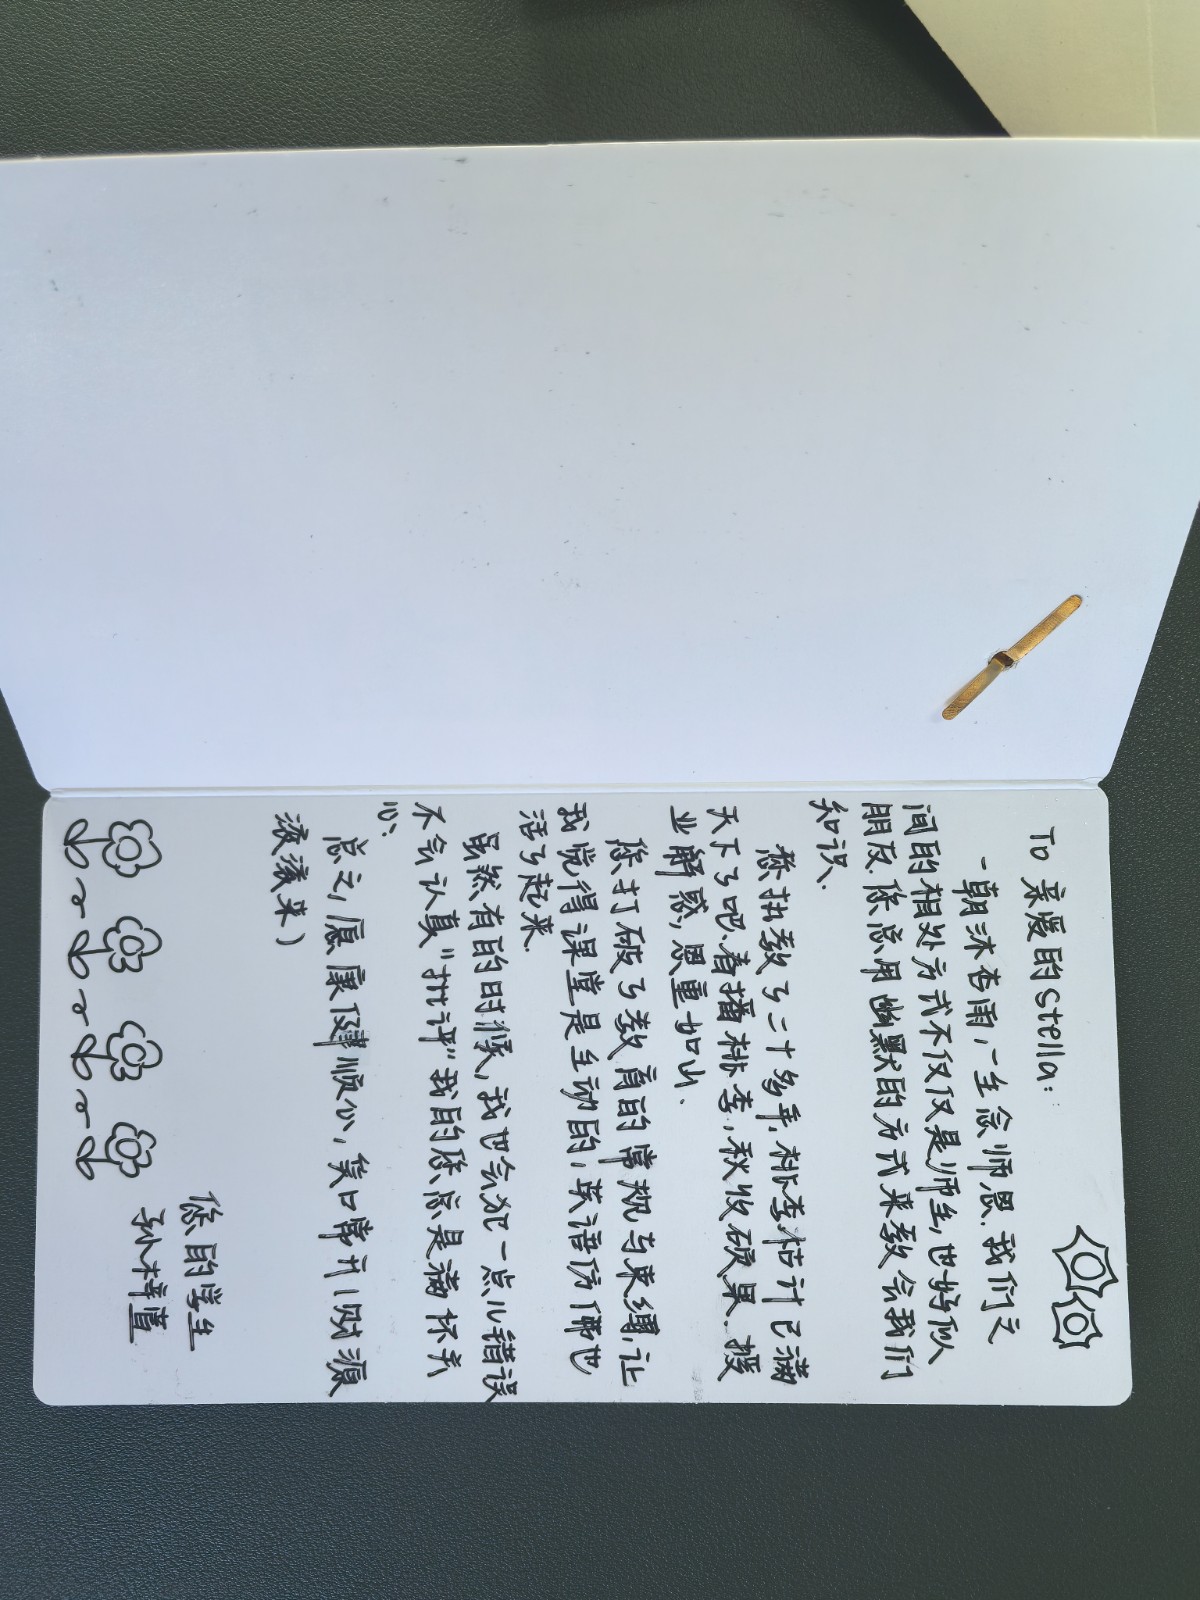 To 亲爱的Stella:
一朝沐杏雨,一生念师恩.我们之
间的相处方式不仅仅是师生,也好似
朋友.您总用幽默的方式来教会我们
知识.
您执教了二十多年,桃李估计已满
天下了吧.春播桃李,秋收硕果.授
业解惑,恩重如山、
您打破了教育的常规与束缚,让
我觉得课堂是生动的,英语仿佛也
活了起来.
虽然有的时候,我也会犯一点儿错误
不会认真"批评"我的您总是满怀关
心:
总之,愿康健顺心,笑口常开(财源
滚滚来)
您的学生
孙梓萱